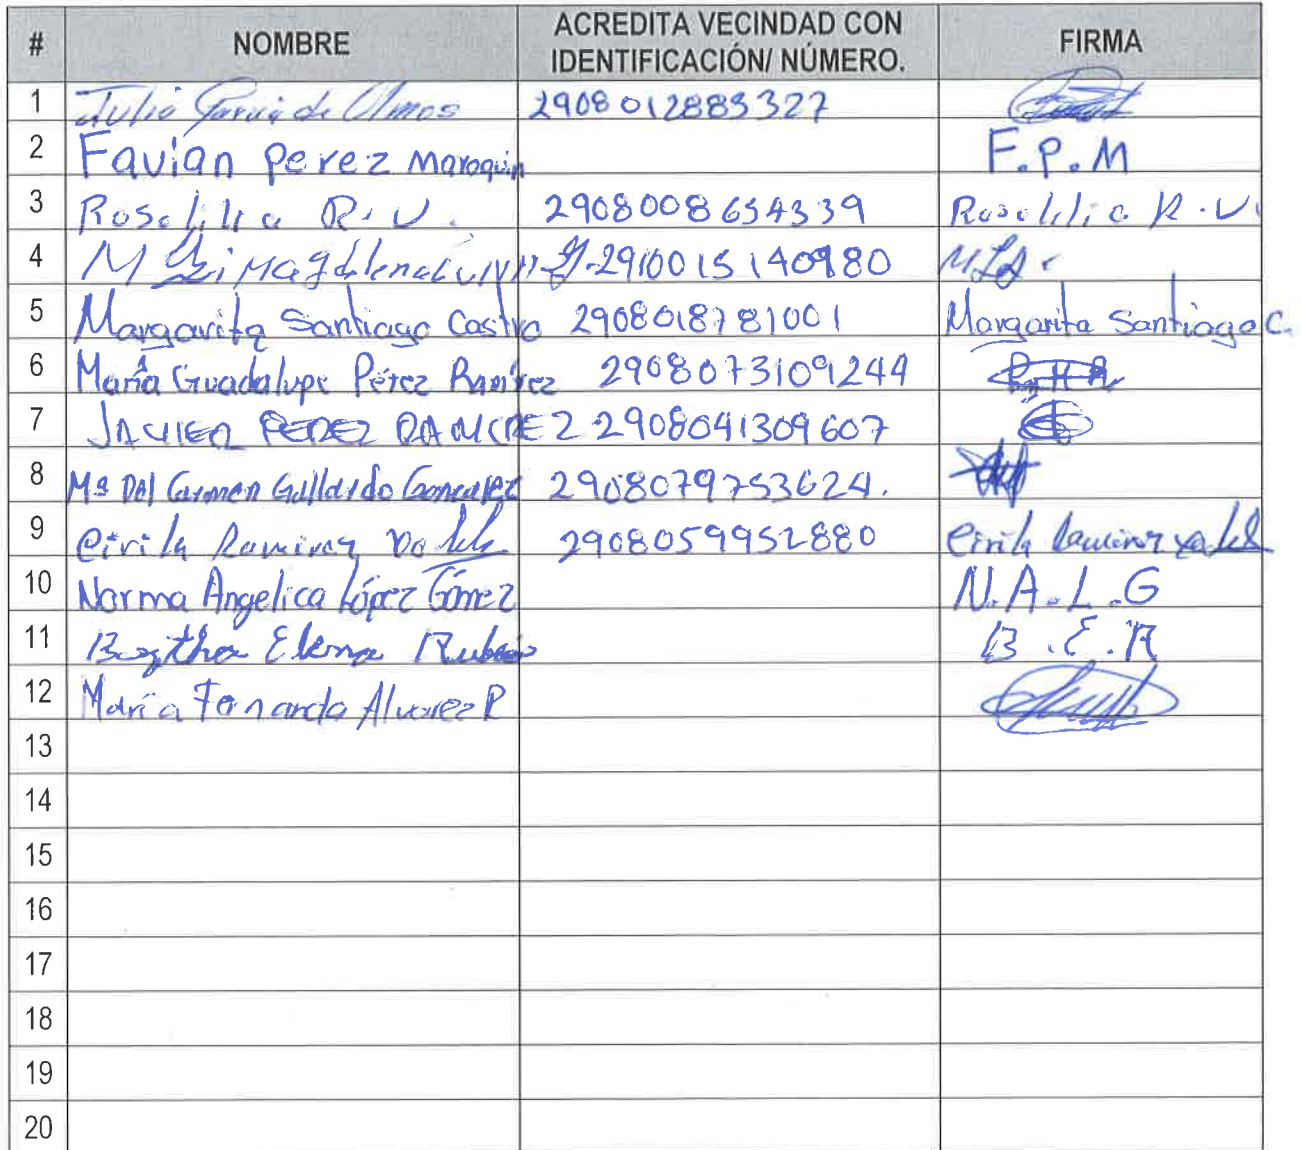 # NOMBRE ACREDITA VECINDAD CON IDENTIFICACIÓN/ NÚMERO. FIRMA
1 Julio Garcia de Olmos 2908012883327
2 Favian perez Maroquin F.P.M
3 Roselilia R.V. 2908008654339 Roselilia R.V.
4 M Magdalena 2910015140980
5 Margarita Santiago Castro 2908018781001 Margarita Santiago C.
6 María Guadalupe Pérez Ramírez 2908073109244
7 JAVIER PEREZ RAMIREZ 2908041309607
8 Mª Del Carmen Gallardo Gonzalez 2908079753624.
9 Cirila Ramirez 2908059952880 Cirila Ramirez
10 Norma Angelica López Gómez N.A.L.G
11 Elena Rubio B.E.R
12 María Fernanda Alvarez R
13
14
15
16
17
18
19
20